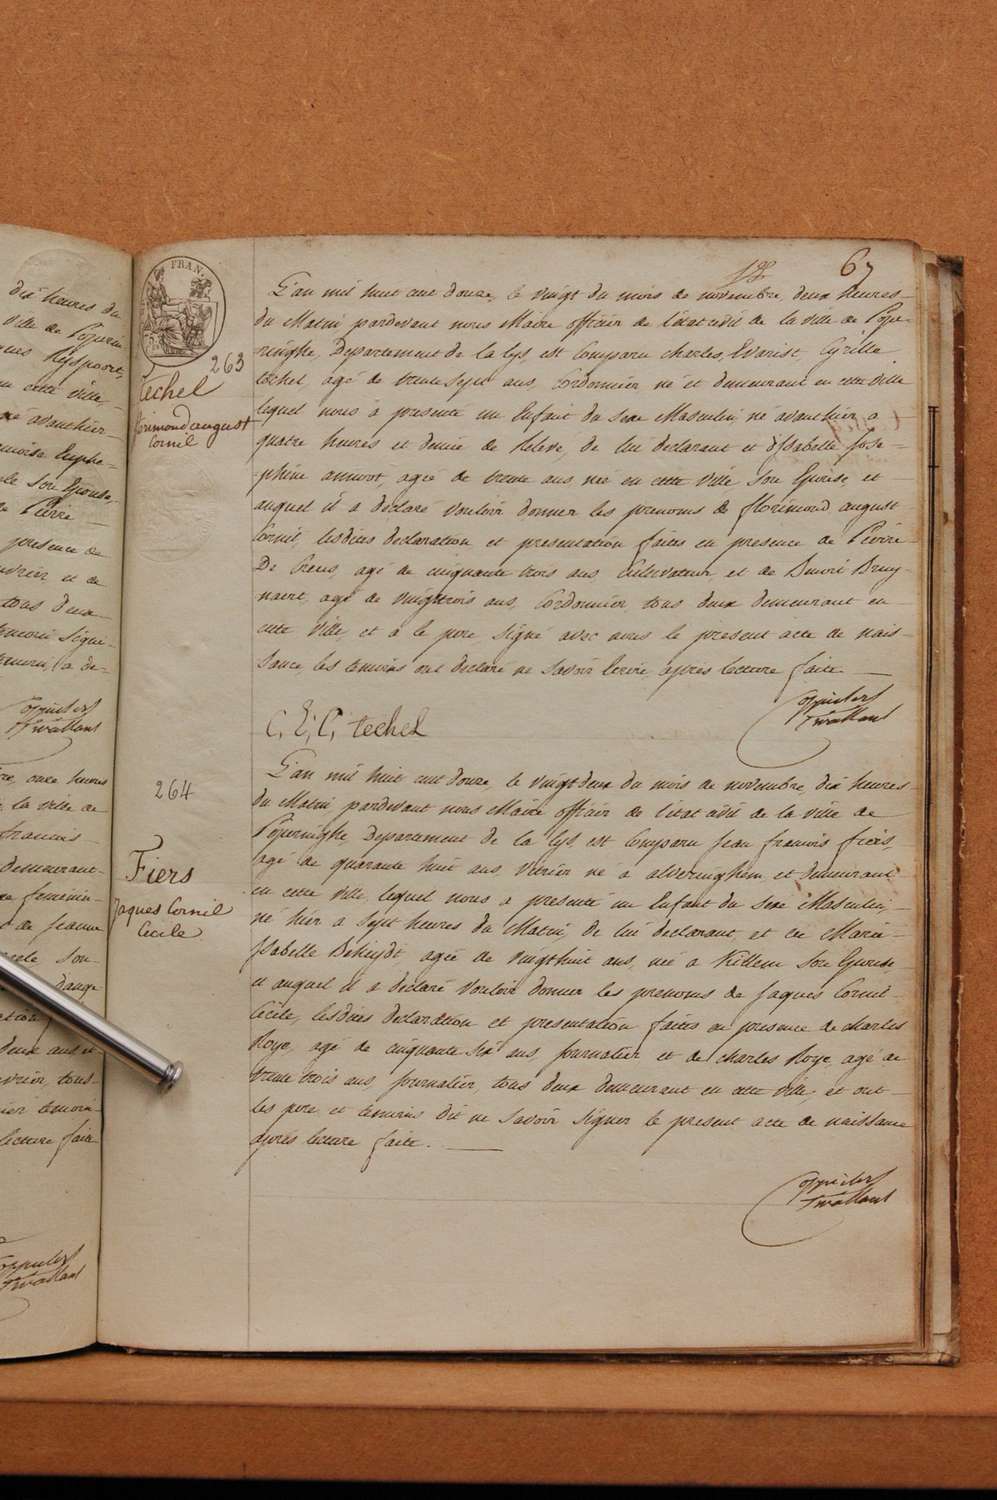 dix heures du
ville de Poperin
cette ville,
né avanthier
son Epouse,
Pierre
presence de
ouvrier et de
tous deux
FRAN.
67
263
techel
florimond august
Cornil
L'an mil huit cent douze, le vingt du mois de novembre, deux heures
du Matin pardevant nous Maire officier de l'état civil de la ville de Pope-
ringhe, Departement de la Lys, est Comparu charles, Evarist, Cyrille
techel, agé de trente sept ans, Cordonnier né et demeurant en cette ville
lequel nous à presenté un Enfant du sexe Masculin, né avanthier a
quatre heures et demie de Relevé, de lui declarant et d'Isabelle Jose-
phine annoot, agée de trente ans, née en cette ville son Epouse, et
auquel il a declaré vouloir donner les prenoms de florimond august
Cornil, lesdites declaration et presentation faites en presence de Pierre
De Creus, agé de cinquante trois ans, Cultivateur et de Desiré Bruy-
naert, agé de vingttrois ans, Cordonnier, tous deux demeurant en
cette ville, et à le pere signé avec nous le present acte de nais-
sance les temoins ont declaré ne savoir Ecrire après lecture faite
C, E, C, techel
264
Fiers
Jaques Cornil
Cecile
L'an mil huit cent douze, le vingtdeux du mois de novembre, dix heures
du Matin pardevant nous Maire officier de l'état civil de la ville de
Poperinghe Departement de la Lys, est Comparu Jean francois fiers,
agé de quarante huit ans, Vitrier né a alveringhem, et demeurant
en cette ville, lequel nous a presenté un Enfant du sexe Masculin,
né hier a sept heures du Matin, de lui declarant et de Marie
Isabelle Dehuydt agée de vingthuit ans, née a Killem son Epouse,
et auquel il a declaré vouloir donner les prenoms de Jaques Cornil
Cecile, lesdites declaration et presentation faites en presence de charles
Roye, agé de cinquante six ans, journalier et de charles Roye, agé de
trente trois ans, journalier, tous deux demeurant en cette ville, et ont
les pere et temoins dit ne savoir signer le present acte de naissance
après lecture faite.